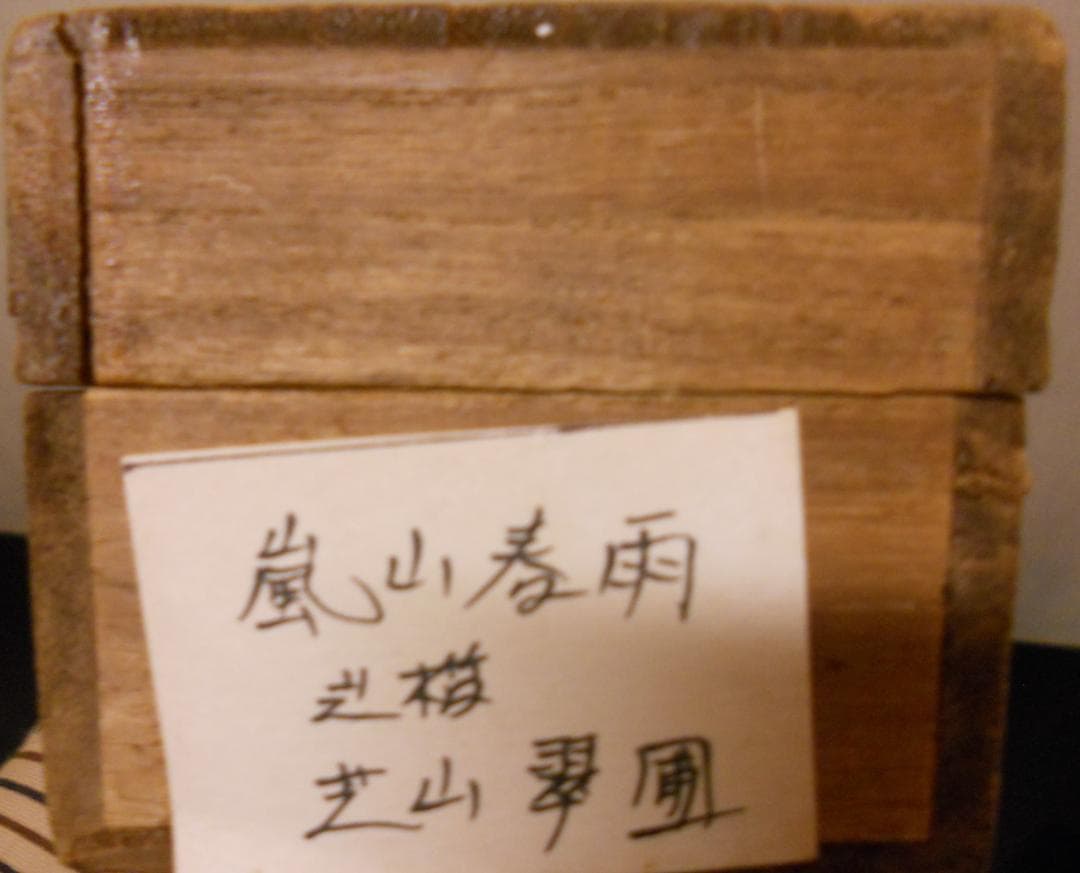 嵐山春雨
之橫
芝山翠圃